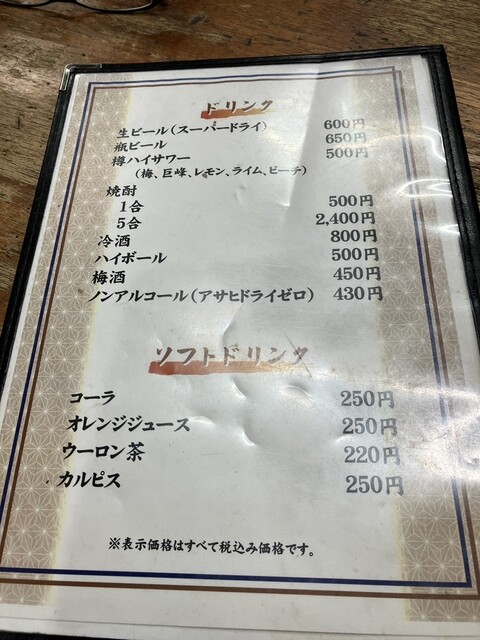 ドリンク
生ビール(スーパードライ) 600円
瓶ビール 650円
樽ハイサワー 500円
(梅、巨峰、レモン、ライム、ピーチ)
焼酎
1合 500円
5合 2,400円
冷酒 800円
ハイボール 500円
梅酒 450円
ノンアルコール(アサヒドライゼロ) 430円
ソフトドリンク
コーラ 250円
オレンジジュース 250円
ウーロン茶 220円
カルピス 250円
※表示価格はすべて税込み価格です。